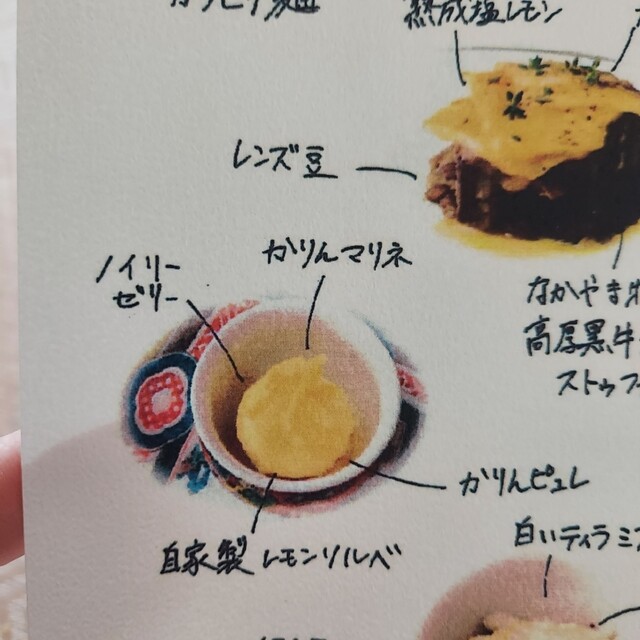 熟成塩レモン
レンズ豆
かりんマリネ
ノイリー
ゼリー
なかやま
高原黒牛
ストゥフ
かりんピュレ
白いティラミス
自家製レモンソルベ